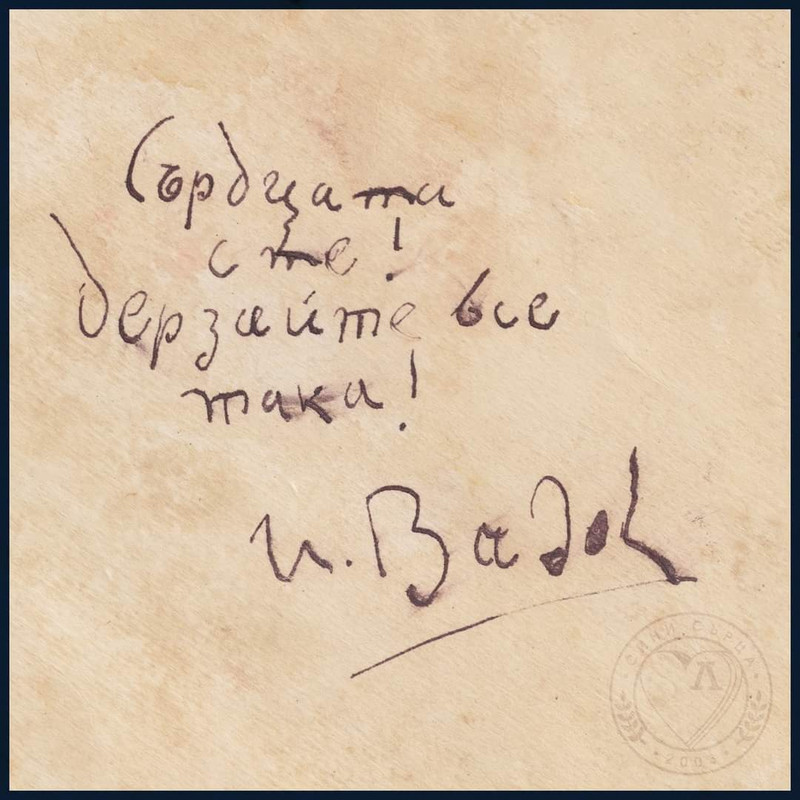 Сърдцата
сте!
дерзайте все
така!
и. Вадов
СИНИ СЪРЦА
Л